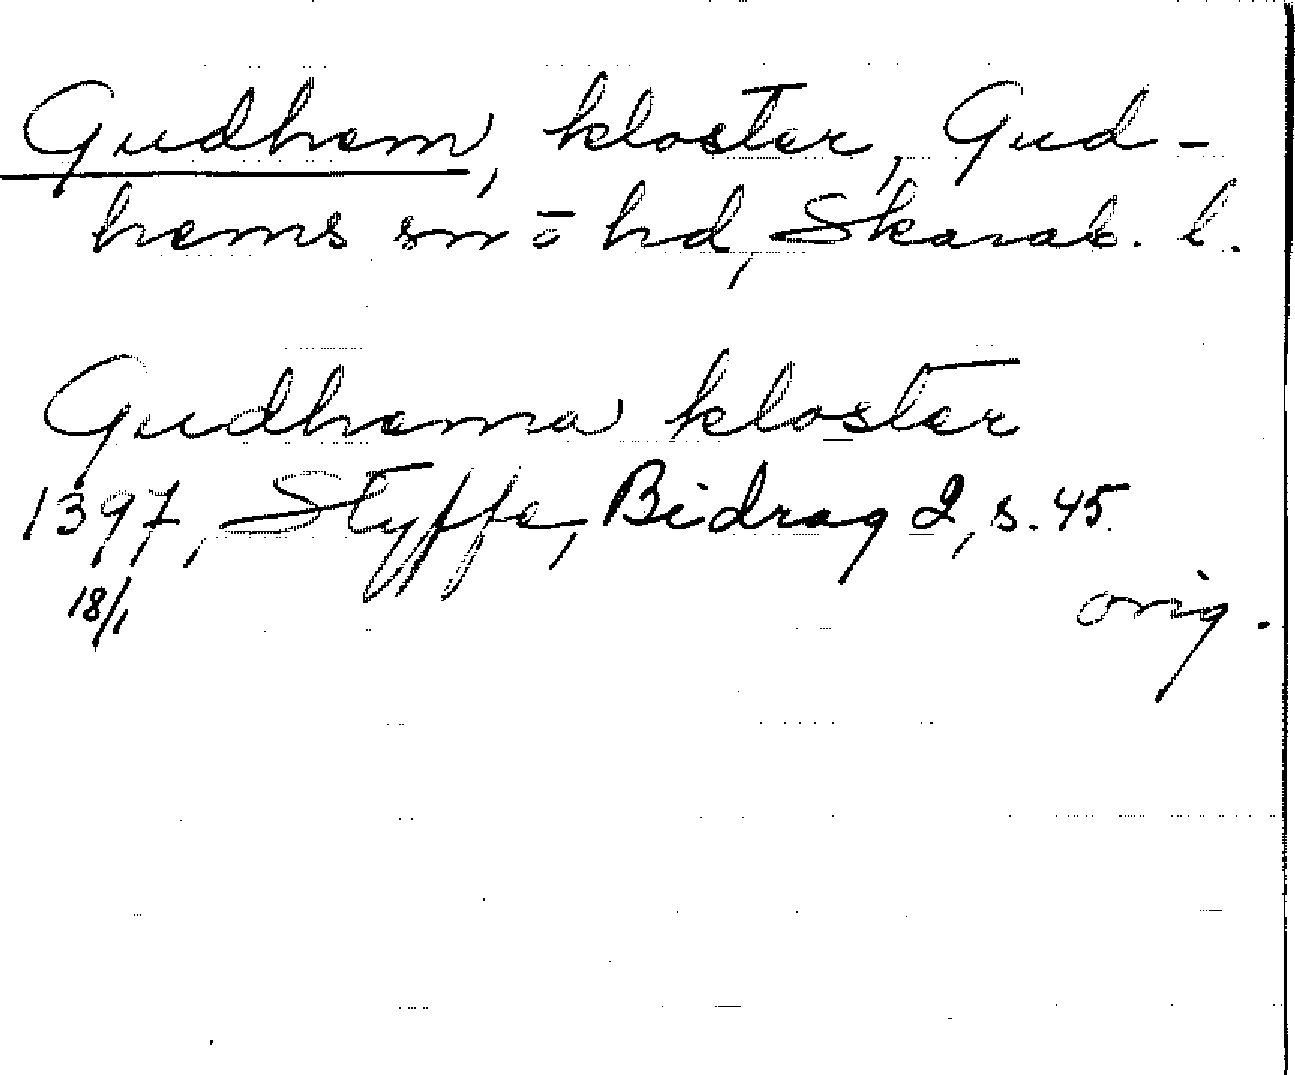 Gudhem, kloster, Gud-
hems sn o hd, Skarab. l.
Gudhema kloster
1397, Styffe, Bidrag 2, s. 45.
18/1
orig.